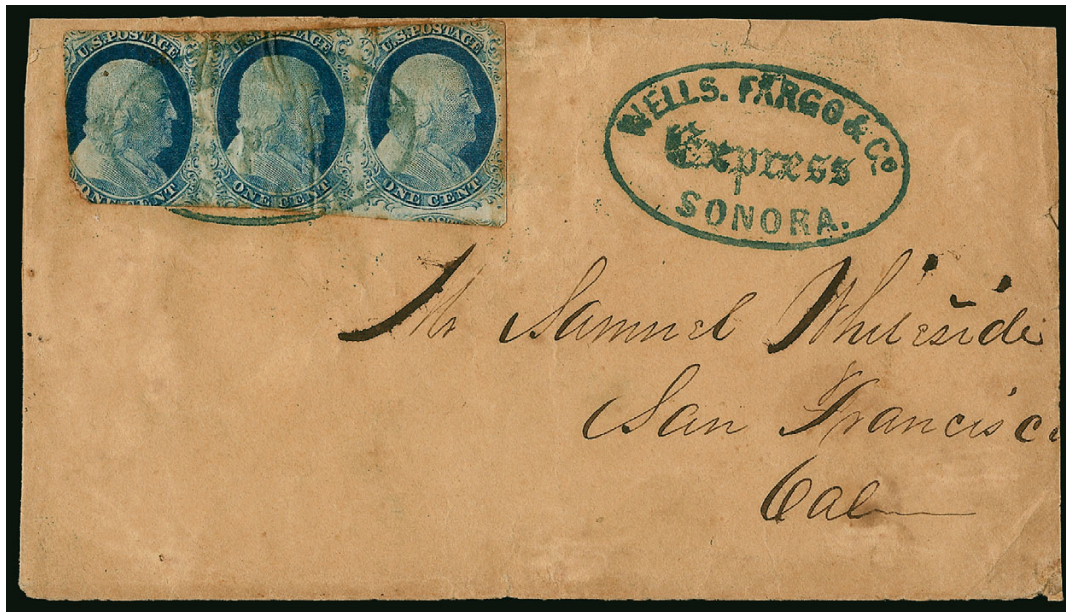 U.S. POSTAGE U.S. POSTAGE U.S. POSTAGE
ONE CENT ONE CENT ONE CENT
WELLS. FARGO & Co
Express
SONORA.
Mr Samuel Whiteside
San Francisco
Cal